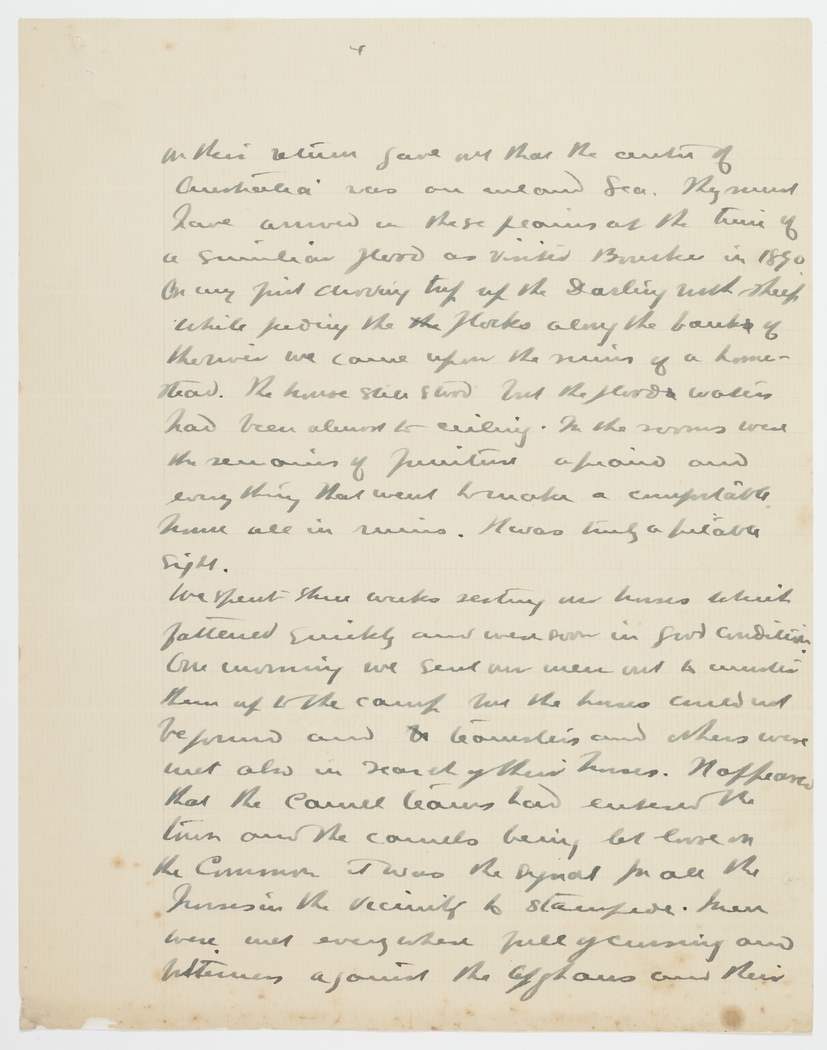 on their return gave out that the centre of
Australia was an inland Sea. They must
have arrived in these plains at the time of
a similiar flood as visited Bourke in 1890
On my first droving trip up the Darling with sheep
while feeding the the flocks along the banks of
the river we came upon the ruins of a home-
stead. The house still stood but the flood waters
had been almost to ceiling. In the rooms were
the remains of furniture a piano and
everything that went to make a comfortable
home all in ruins. It was truly a pitable
sight.
We spent three weeks resting our horses which
fattened quickly and were soon in good condition.
One morning we sent our men out to muster
them up to the camp but the horses could not
be found and teamsters and others were
met also in search of their horses. It appeared
that the Camel teams had entered the
town and the camels being let loose on
the Common it was the signal for all the
horses in the vicinity to stampede. Men
were met everywhere full of cursing and
bitterness against the Afghans and their